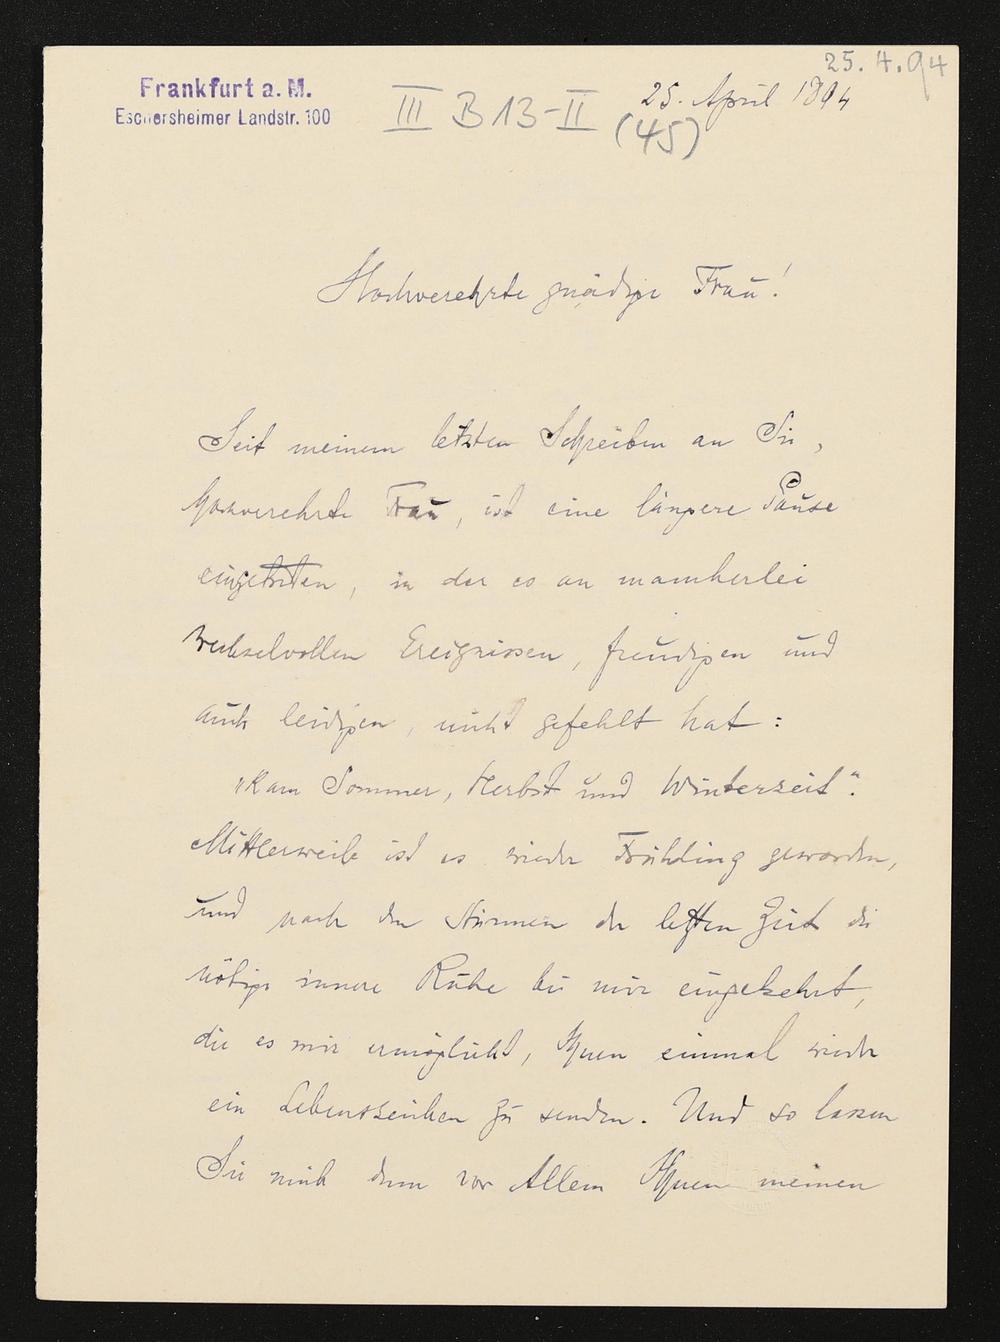 25.4.94
Frankfurt a. M.
Eschersheimer Landstr. 100
III B 13-II
(45)
25. April 1894
Hochverehrte gnädige Frau!
Seit meinem letzten Schreiben an Sie,
hochverehrte Frau, ist eine längere Pause
eingetreten, in der es an mancherlei
wechselvollen Ereignissen, freudigen und
auch leidigen, nicht gefehlt hat:
"Kam Sommer, Herbst und Winterzeit".
Mittlerweile ist es wieder Frühling geworden,
und nach den Stürmen der letzten Zeit die
nötige innere Ruhe bei mir eingekehrt,
die es mir ermöglicht, Ihnen einmal wieder
ein Lebenszeichen zu senden. Und so lassen
Sie mich denn vor Allem Ihnen meinen